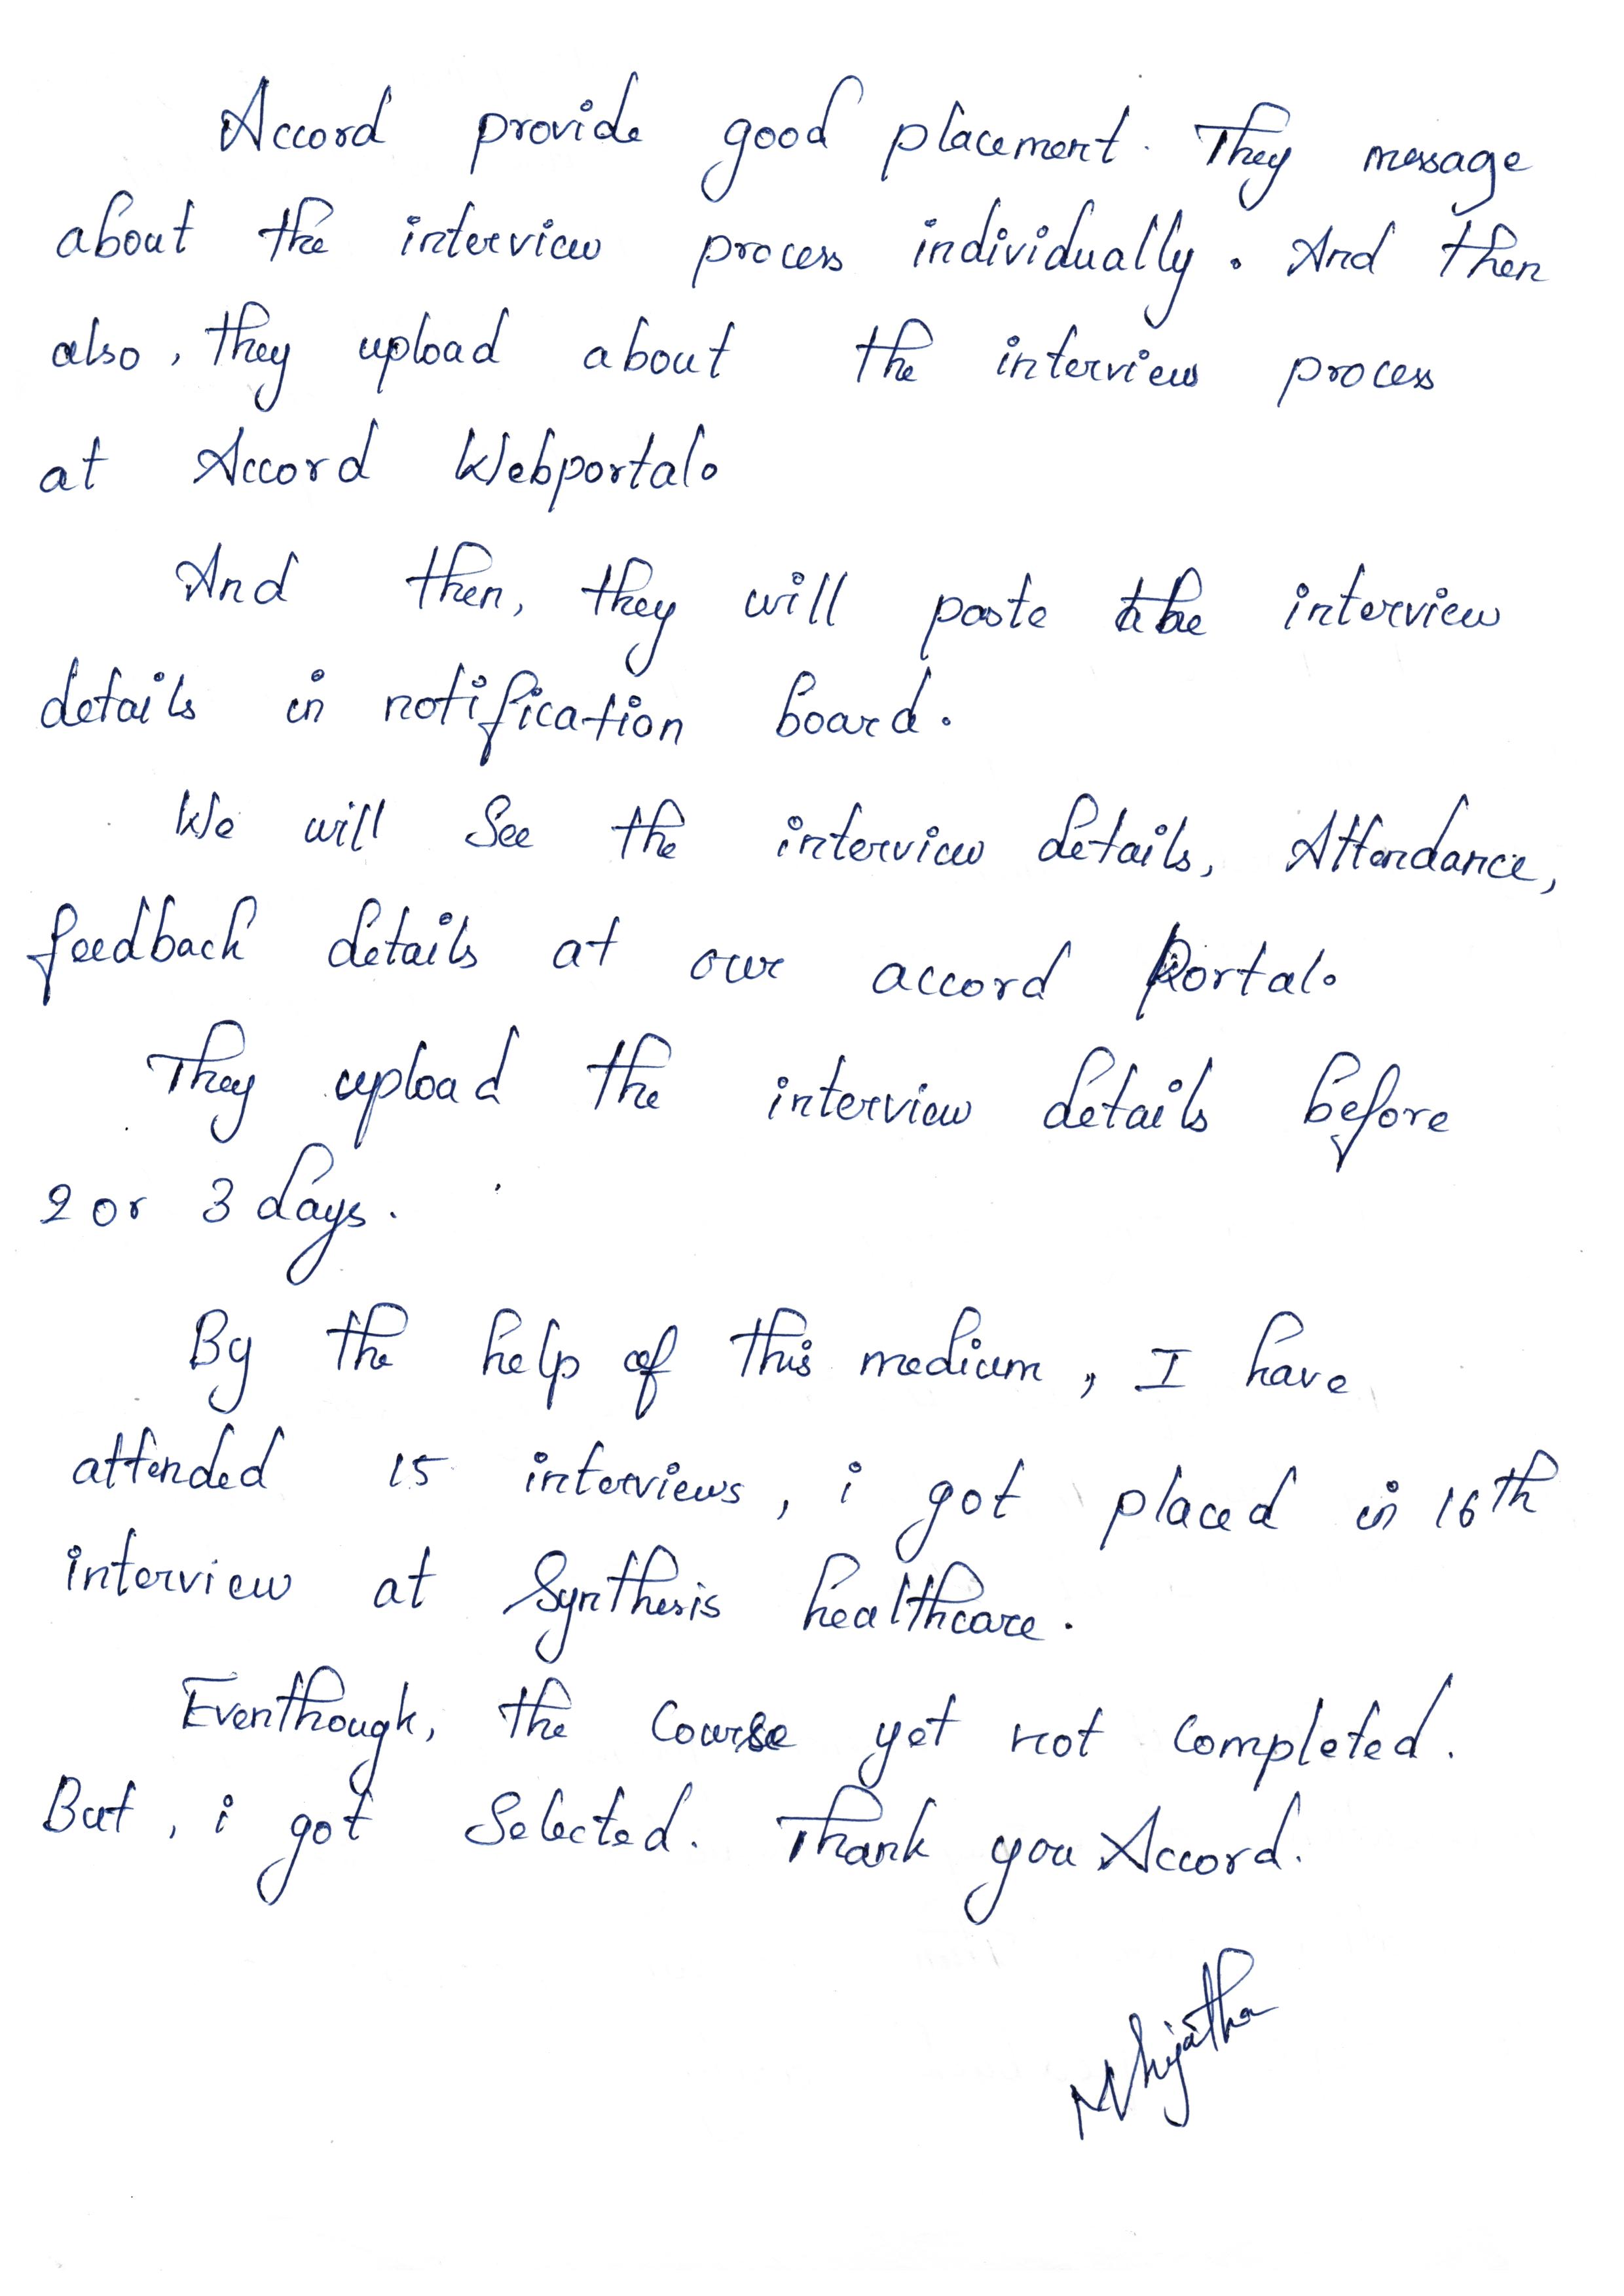 Accord provide good placement. They message
about the interview process individually. And then
also, they upload about the interview process
at Accord Webportal.
And then, they will paste the interview
details in notification board.
We will See the interview details, Attendance,
feedback details at our accord Portal.
They upload the interview details before
2 or 3 days.
By the help of this medium, I have
attended 15 interviews, i got placed in 16th
interview at Synthesis healthcare.
Eventhough, the Course yet not completed.
But, i got Selected. Thank you Accord.